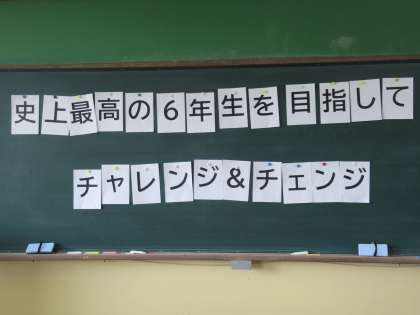 史上最高の6年生を目指して
チャレンジ&チェンジ